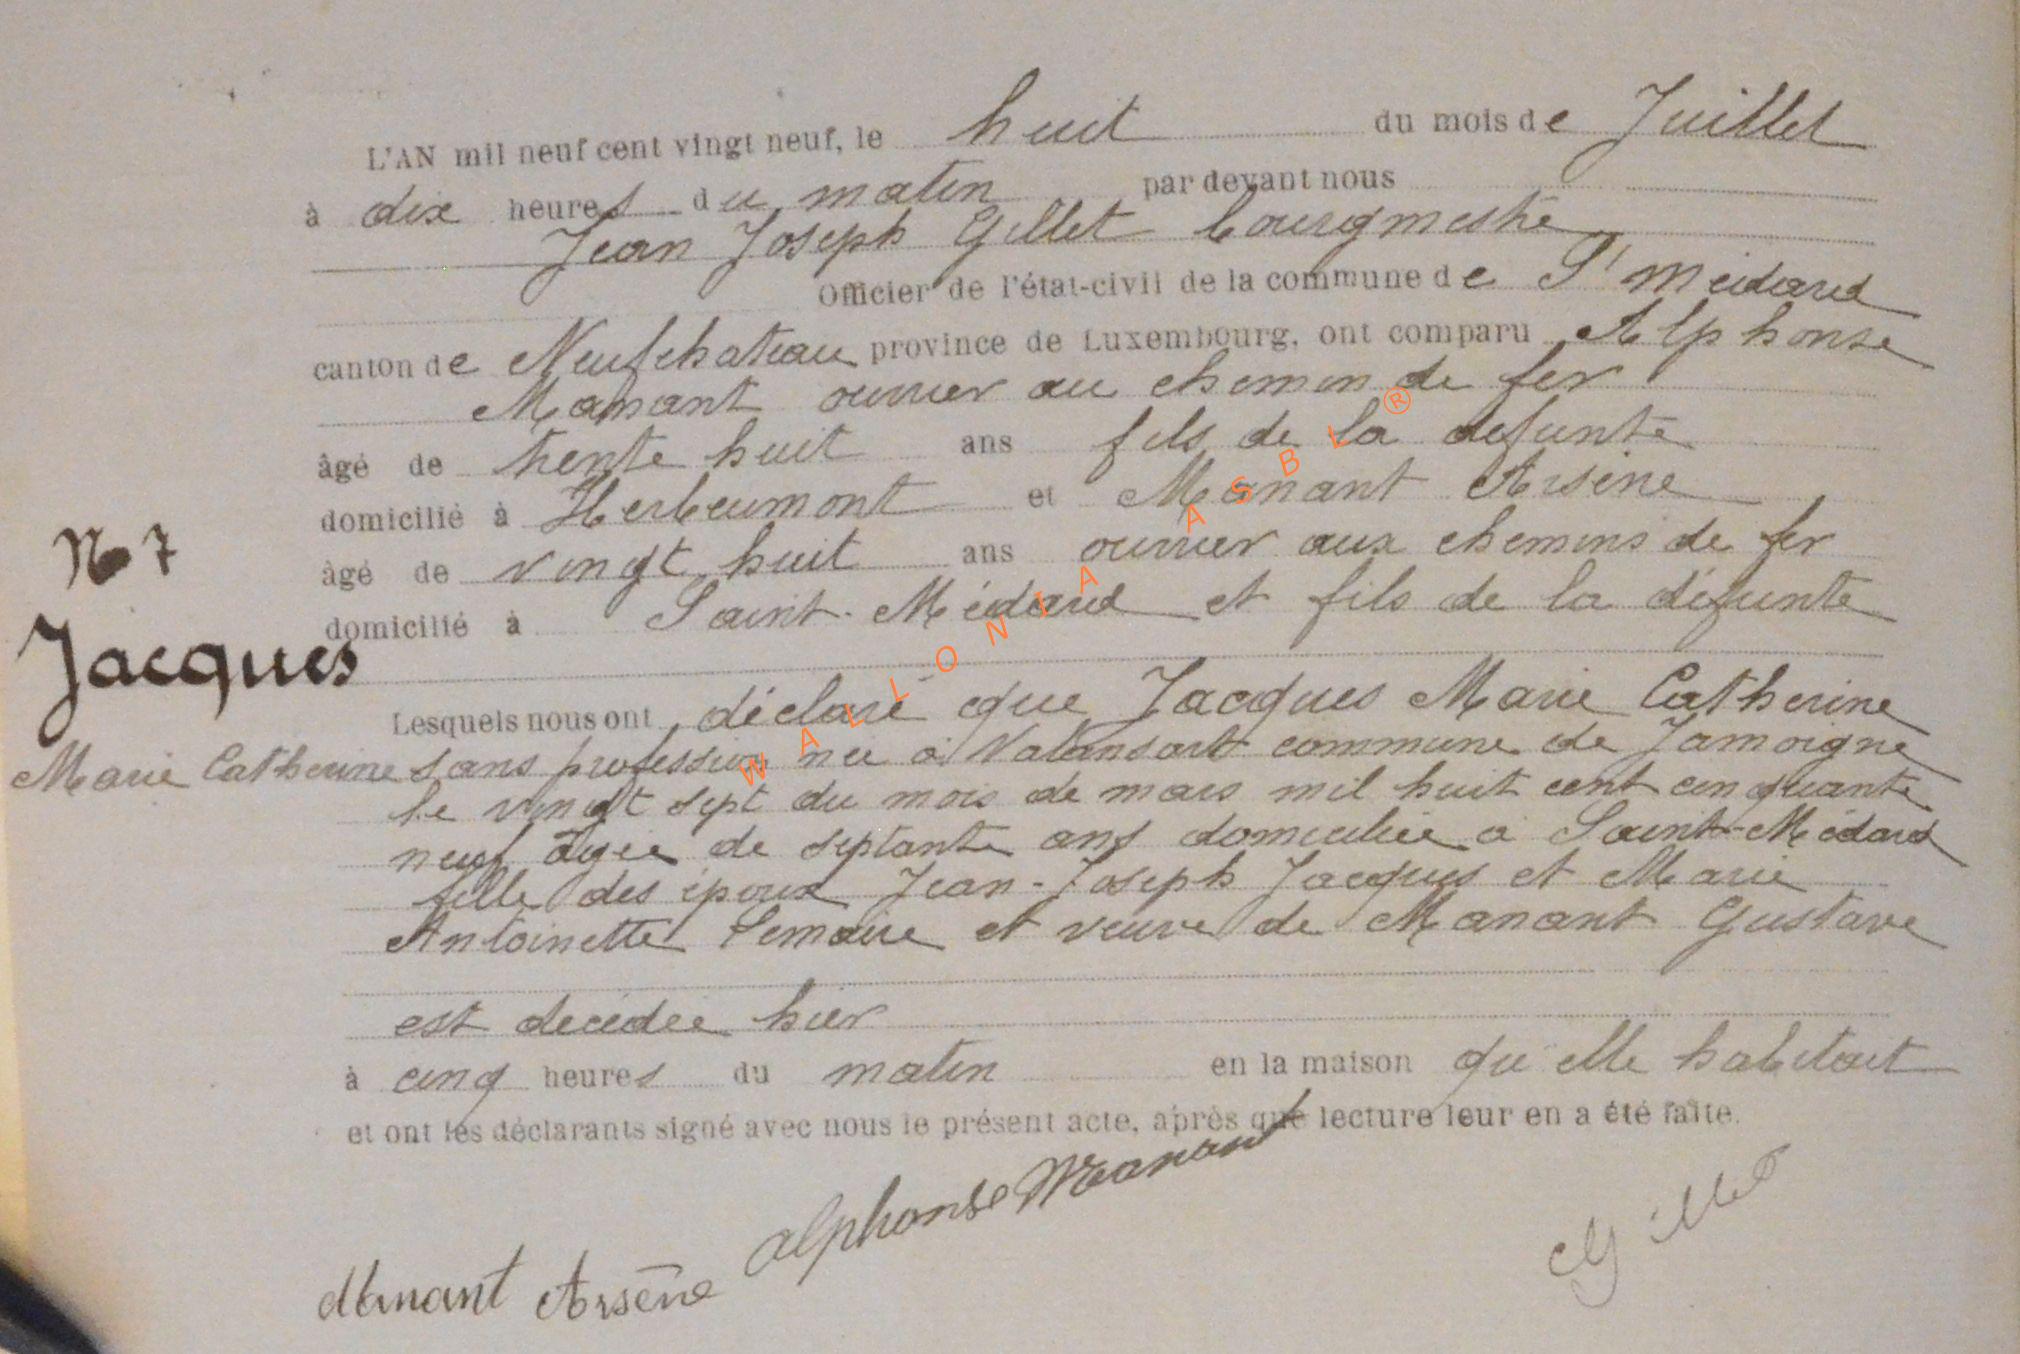 L'AN mil neuf cent vingt neuf, le huit du mois de Juillet
à dix heures du matin par devant nous
Jean Joseph Gillet bourgmestre
Officier de l'état-civil de la commune de St Médard
canton de Neufchateau province de Luxembourg, ont comparu Alphonse
Manant ouvrier au chemin de fer
âgé de trente huit ans fils de la defunte
domicilié à Herbeumont et Manant Arsène
âgé de vingt huit ans ouvrier aux chemins de fer
domicilié à Saint-Médard et fils de la défunte
N° 7
Jacques
Marie Catherine
Lesquels nous ont déclaré que Jacques Marie Catherine
sans profession née à Valansart commune de Jamoigne
le vingt sept du mois de mars mil huit cent cinquante
neuf âgée de septante ans domiciliée à Saint-Médard
fille des époux Jean-Joseph Jacques et Marie
Antoinette Lemaire et veuve de Manant Gustave
est décédée hier
à cinq heures du matin en la maison qu'elle habitait
et ont les déclarants signé avec nous le présent acte, après que lecture leur en a été faite.
Alphonse Manant
Gillet
Manant Arsène
WALLONIA ASBL ®